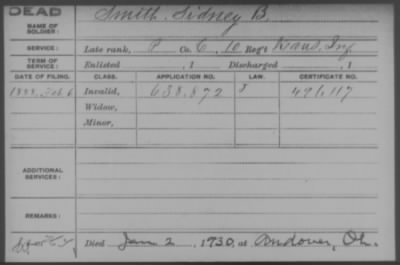 DEAD
Smith, Sidney B.
NAME OF
SOLDIER:
SERVICE:
Late rank, P Co. C, 10 Reg't Kans. Inf
TERM OF
SERVICE:
Enlisted , 1 Discharged , 1
DATE OF FILING. CLASS. APPLICATION NO. LAW. CERTIFICATE NO.
1888, Feb. 6 Invalid, 638.872 J 491.117
Widow,
Minor,
ADDITIONAL
SERVICES:
REMARKS:
Died Jan 2, 1930, at Andover, Oh.